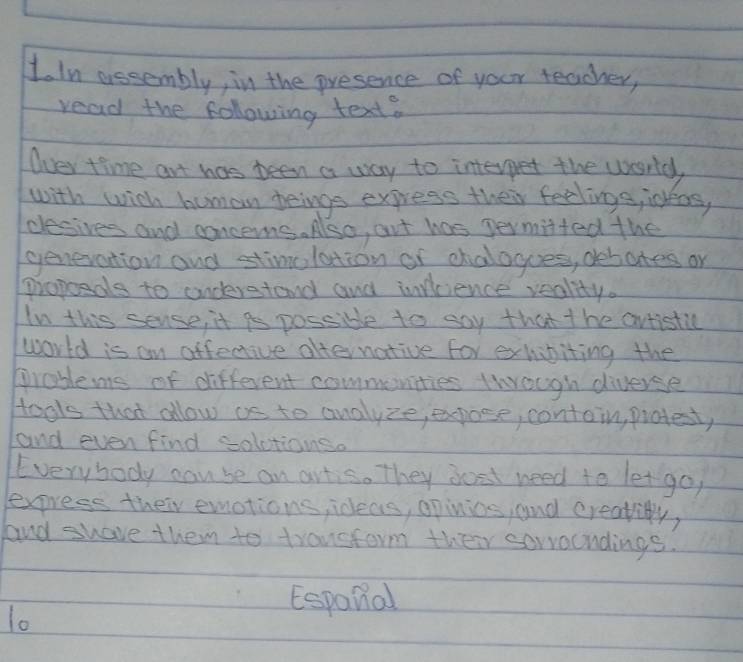 1. In assembly, in the presence of your teacher,
read the following text:
Over time art has been a way to interpret the world,
with wich human beings express their feelings, ideas,
desires and concerns. Also, art has permitted the
generation and stimulation of dialogues, debates or
proposals to understand and influence reality.
In this sense, it is possible to say that the artistic
world is an affective alternative for exhibiting the
problems of different communities through diverse
tools that allow us to analyze, expose, contain, protest,
and even find solutions.
Everybody can be an artis. They just need to let go,
express their emotions, ideas, opinios, and creativity,
and share them to transform their sorroundings.
Español
1.